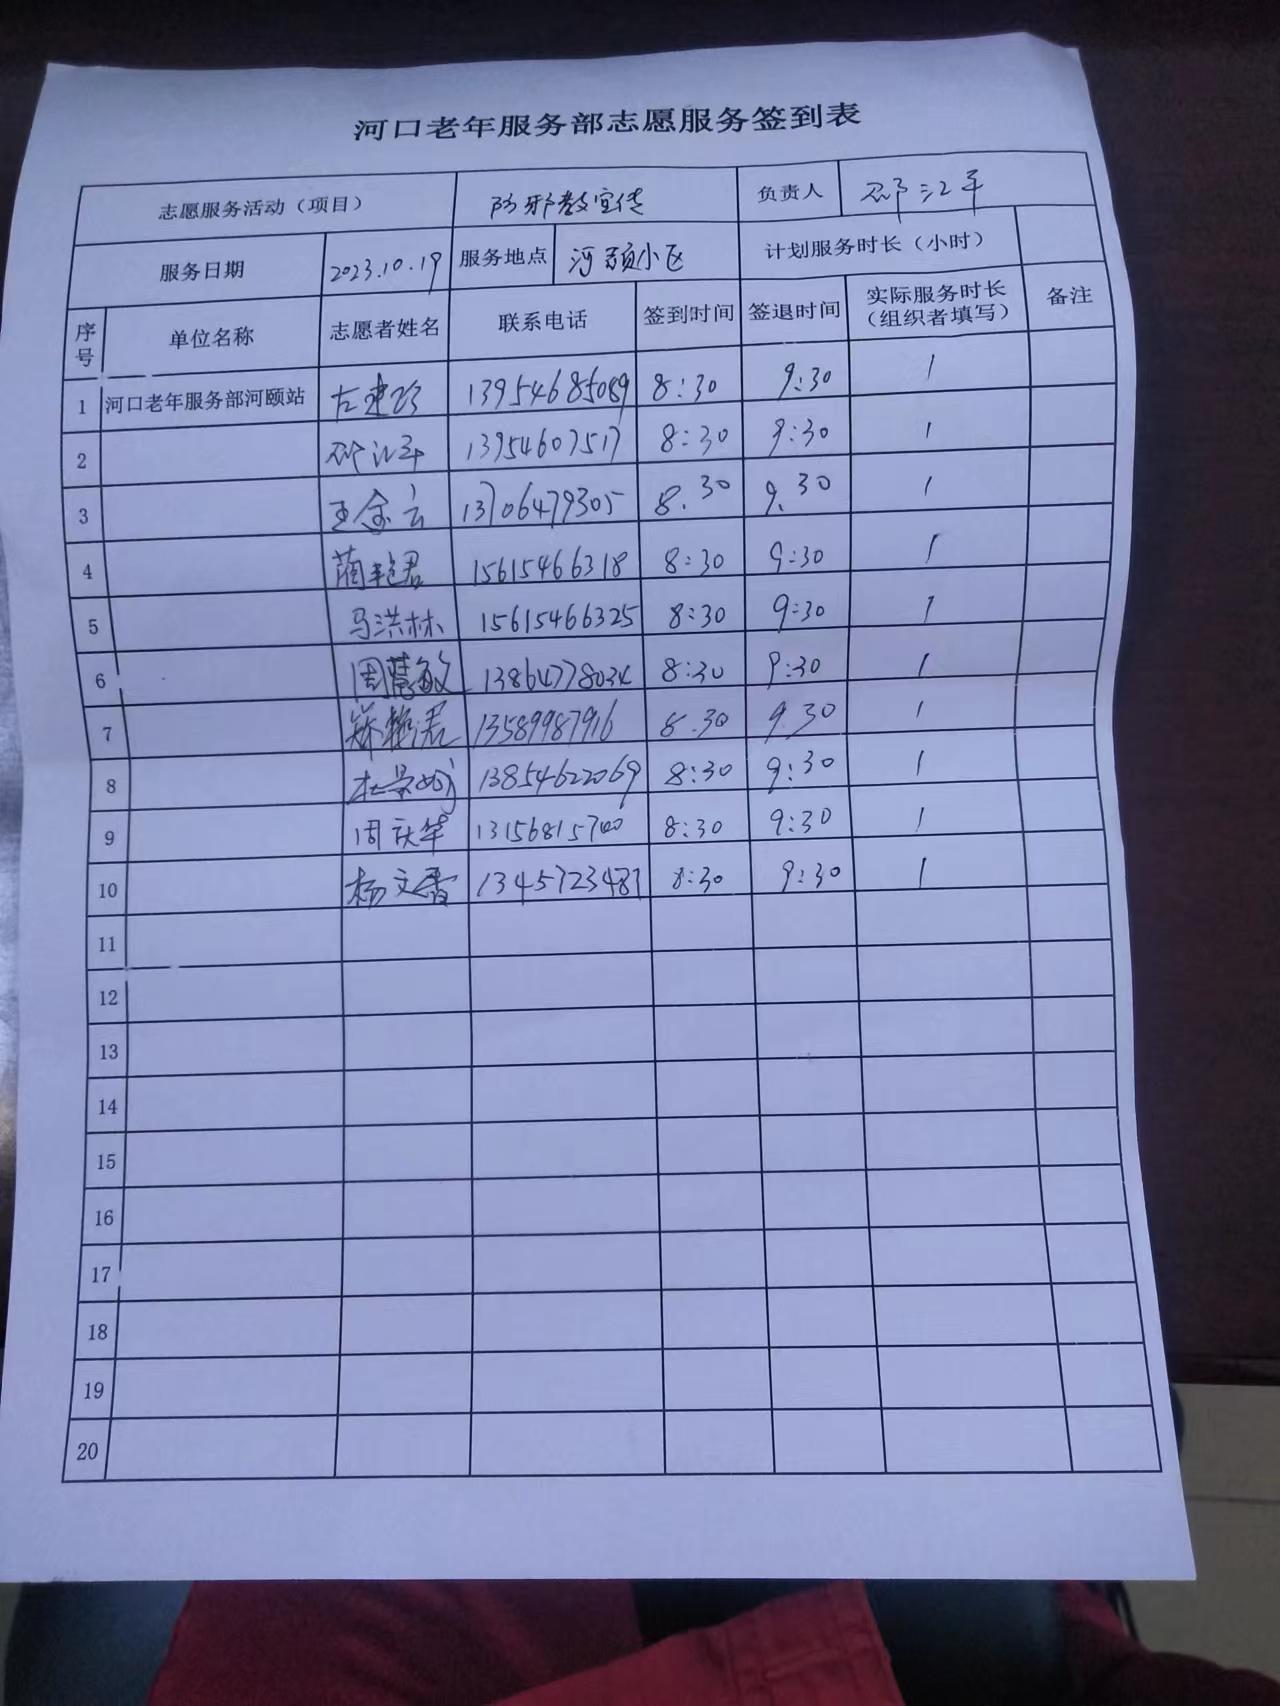 河口老年服务部志愿服务签到表
志愿服务活动（项目） 防邪教宣传 负责人 江平
服务日期 2023.10.19 服务地点 河颐小区 计划服务时长（小时）
序号 单位名称 志愿者姓名 联系电话 签到时间 签退时间 实际服务时长（组织者填写） 备注
1 河口老年服务部河颐站 左建 13954685089 8:30 9:30 1
2 江平 13954607517 8:30 9:30 1
3 王金云 13706479305 8.30 9.30 1
4 蔺艳君 15615466318 8:30 9:30 1
5 马洪林 15615466325 8:30 9:30 1
6 周慧敏 13864778034 8:30 9:30 1
7 艳君 13589987916 8.30 9.30 1
8 杜景 13854622069 8:30 9:30 1
9 周庆华 13156815700 8:30 9:30 1
10 杨文香 13457234 8:30 9:30 1
11
12
13
14
15
16
17
18
19
20